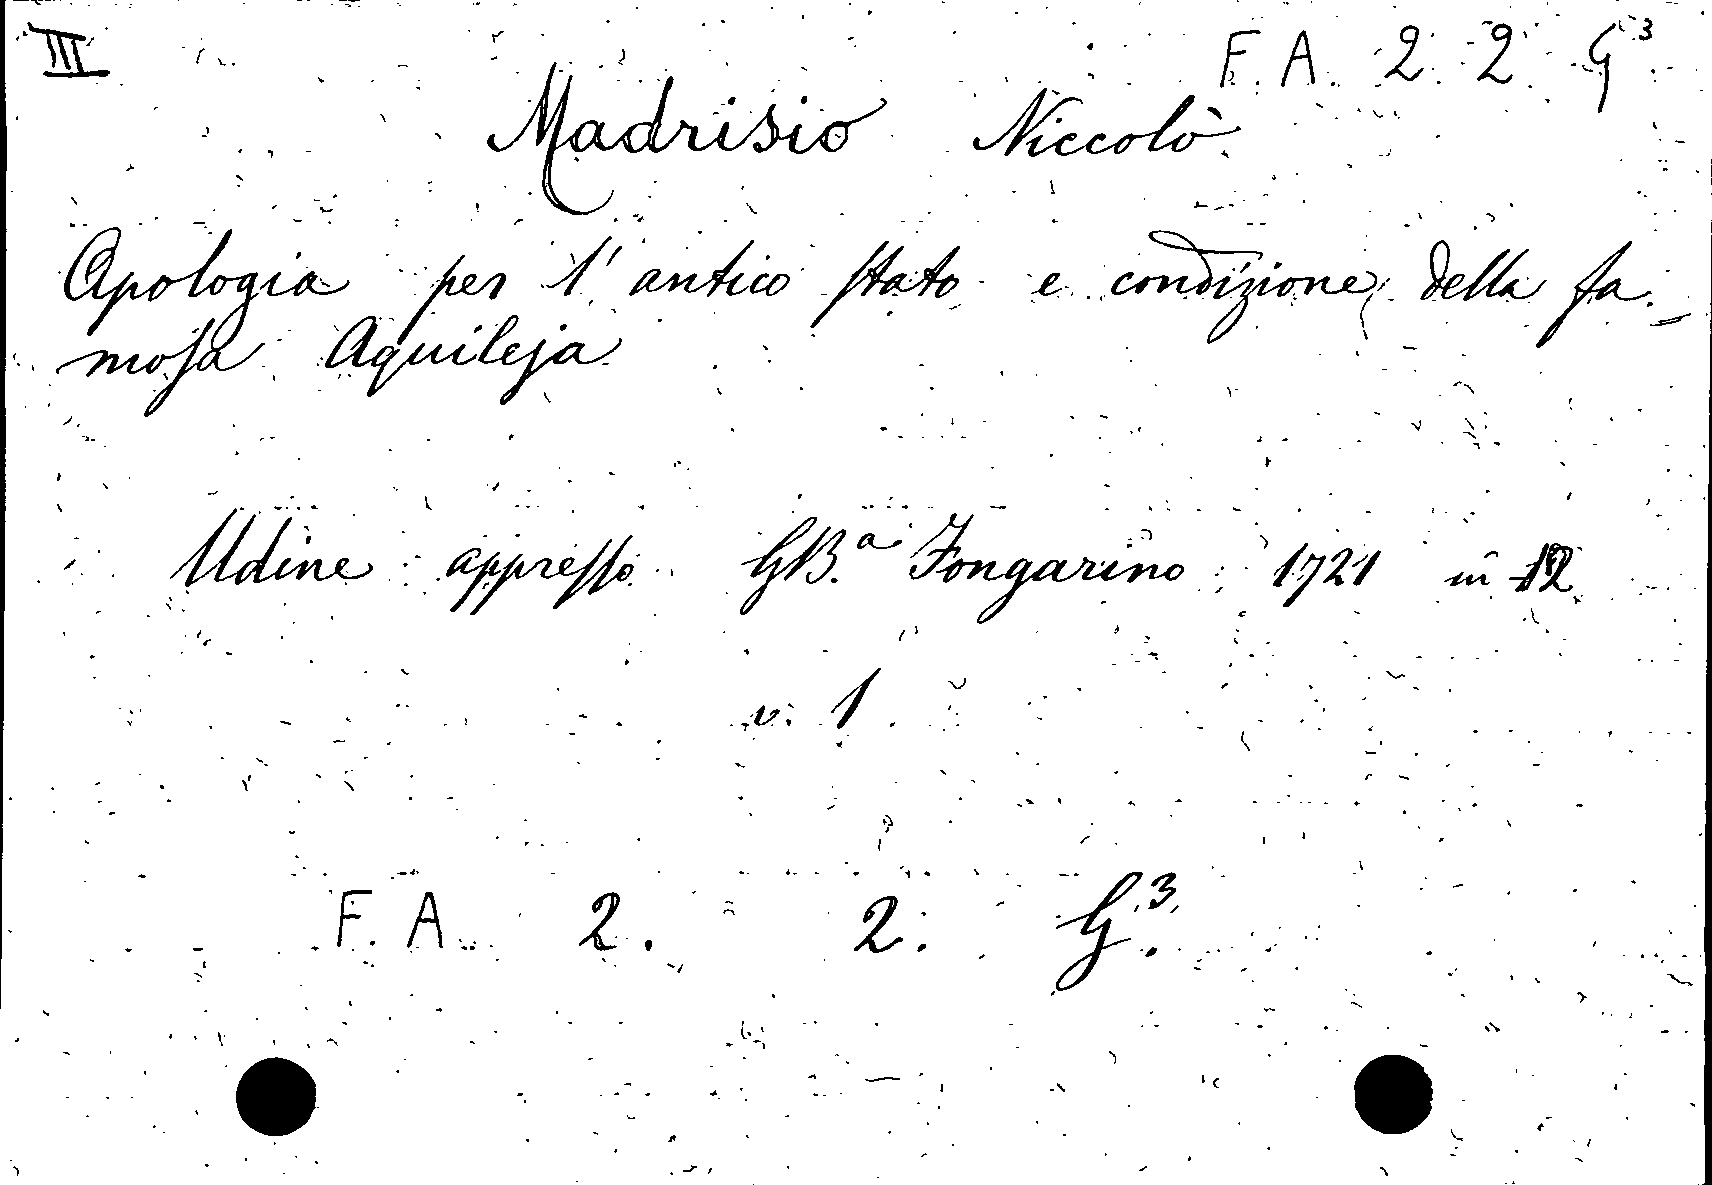 III
F. A. 2. 2 G³
Madrisio Niccolò
Apologia per l'antico stato e condizione della fa-
mosa Aquileja
Udine appresso GB.ª Fongarino 1721 in 12
v. 1
F. A. 2. 2. G.³